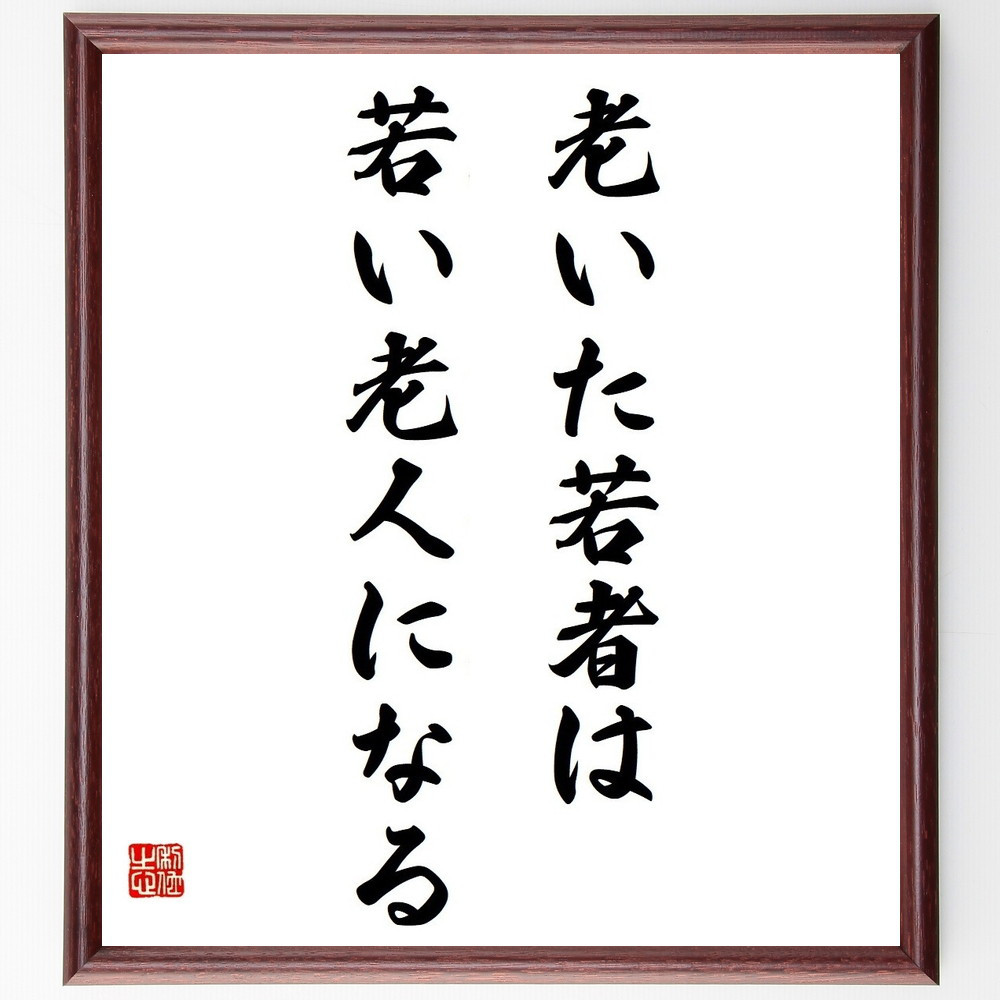 老いた若者は
若い老人になる